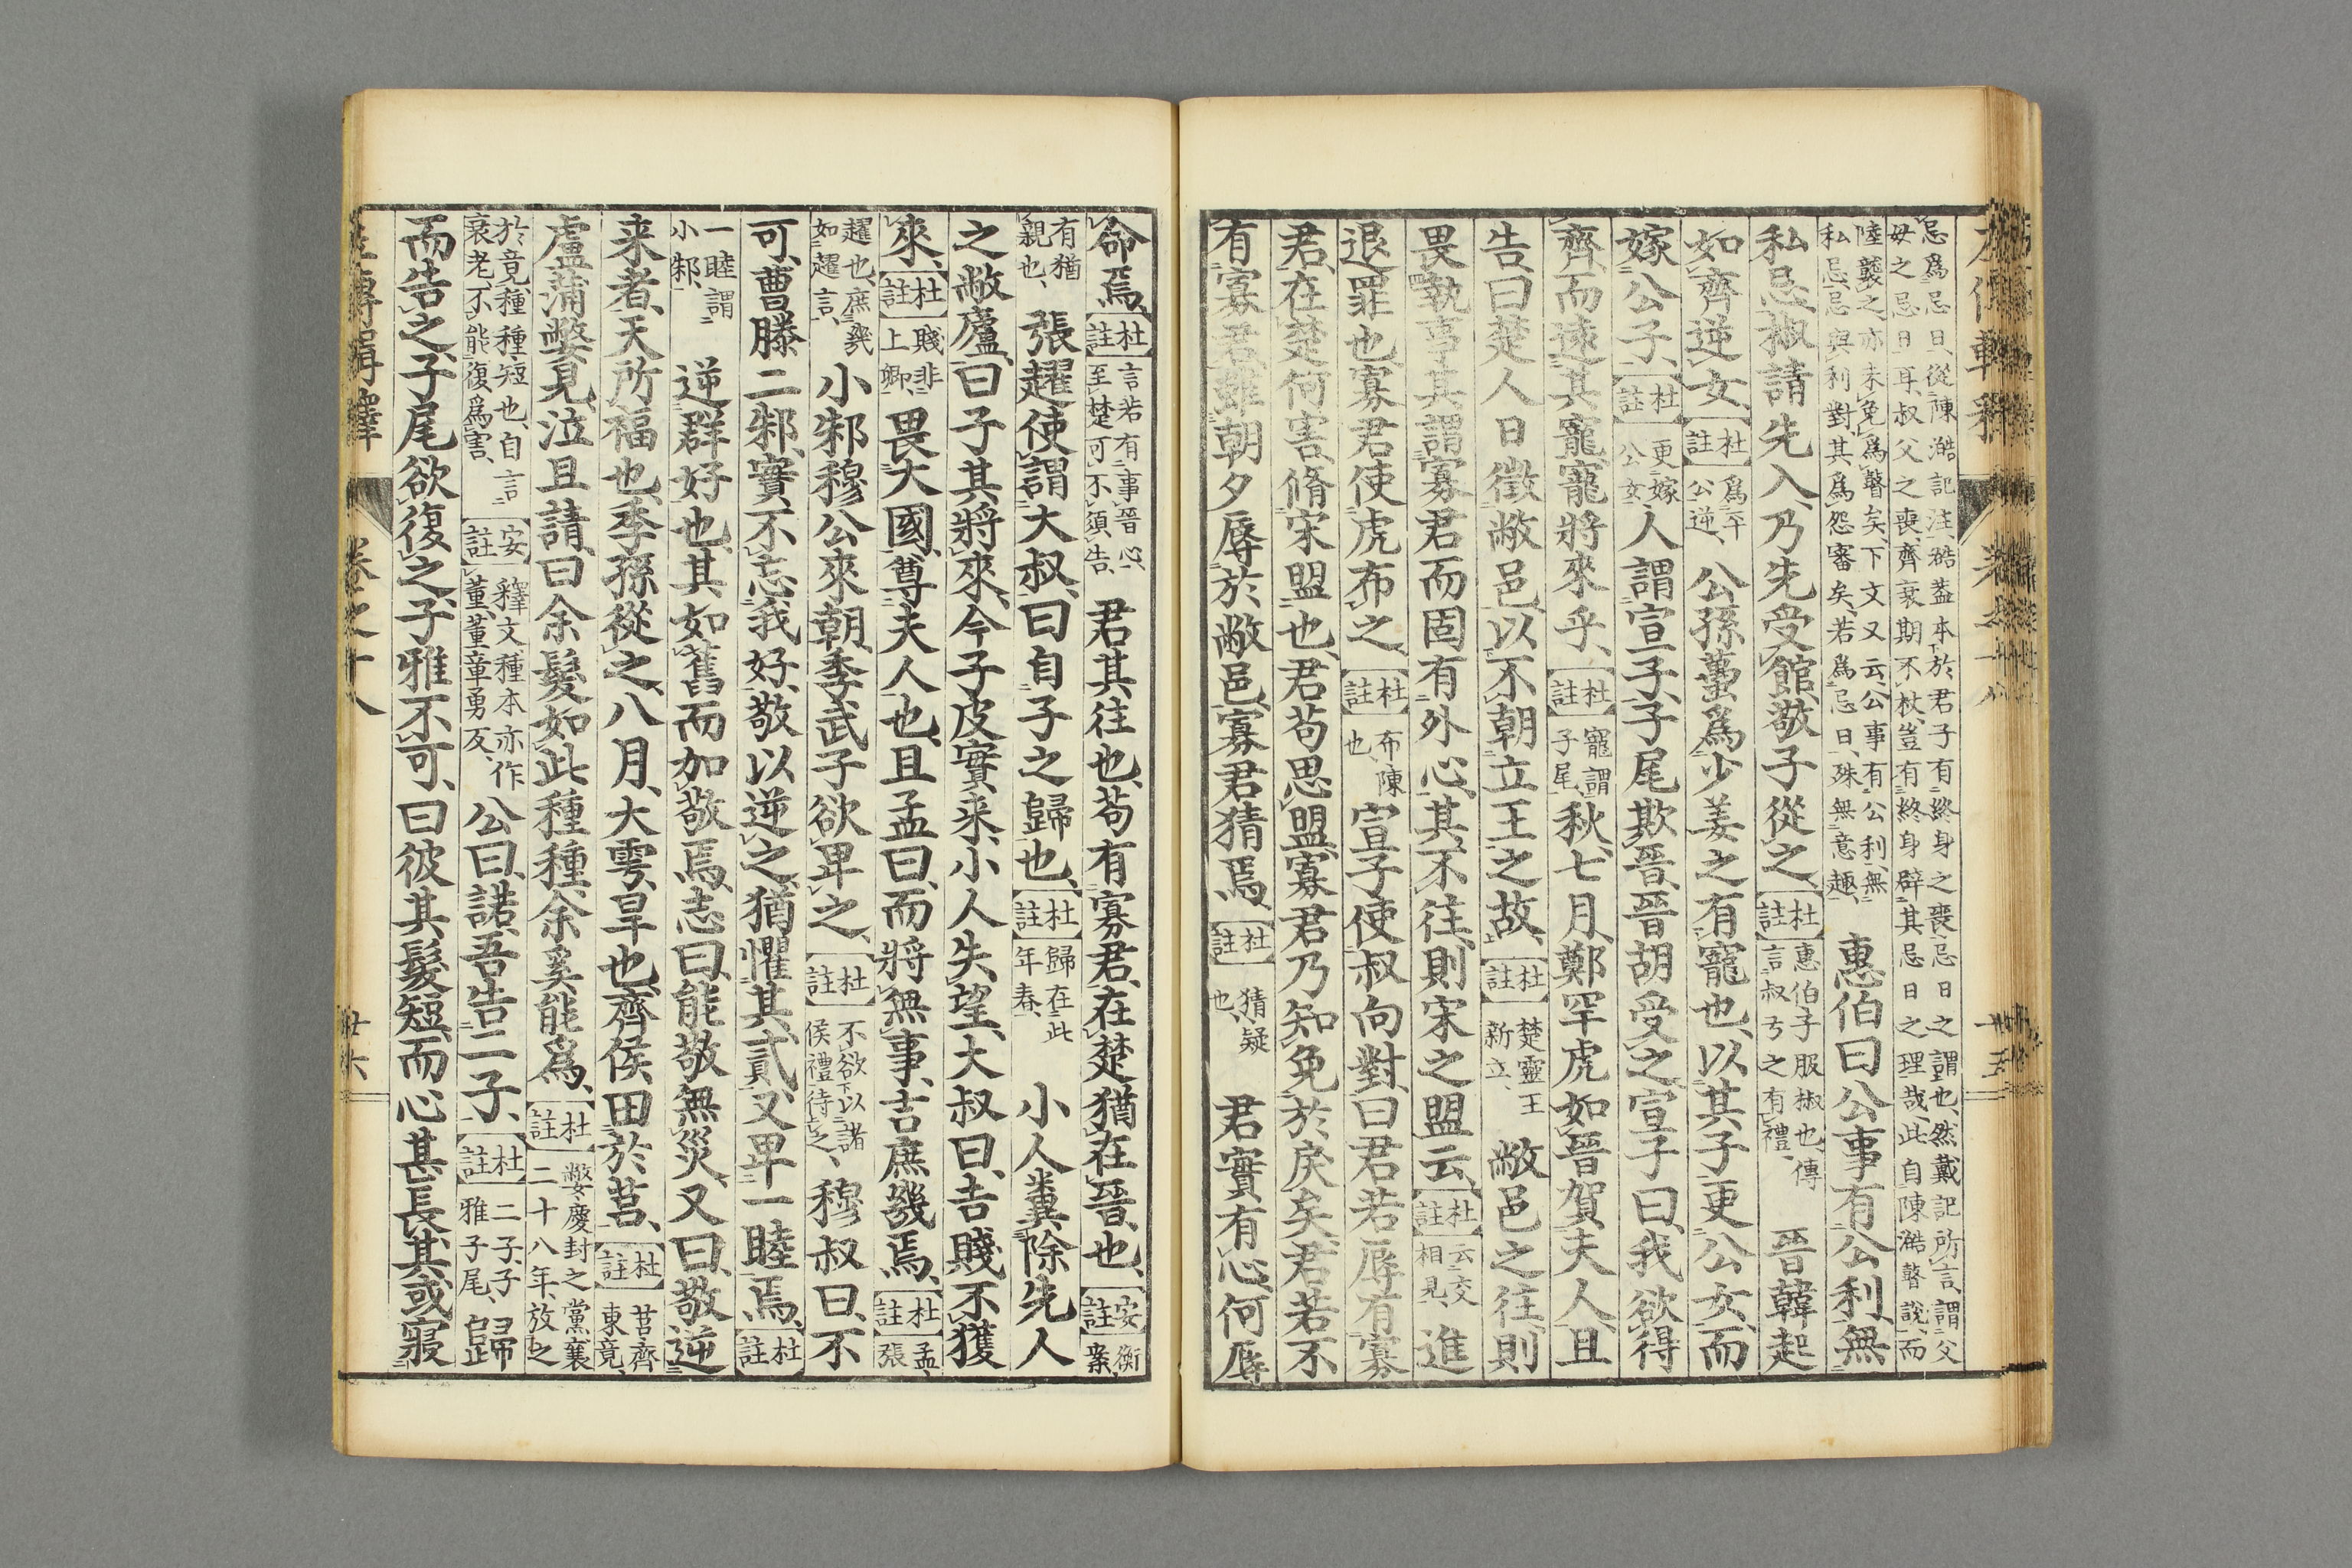 忌爲忌日、從陳澔記注、澔葢本於君子有終身之喪忌日之謂也、然戴記所言、謂父
母之忌日耳、叔父之喪、齊衰期不杖、豈有終身辟其忌日之理哉、此自陳澔瞽說、而
陸龑之、亦未免爲瞽矣、下文又云、公事有公利、無
私忌、忌與利對、其爲怨審矣、若爲忌日、殊無意趣、
惠伯曰公事有公利、無
私忌、椒請先入、乃先受館、敬子從之、
杜註
惠伯子服椒也、傳
言叔弓之有禮、
晉韓起
如齊逆女、
杜註
爲平
公逆、
公孫蠆爲少姜之有寵也、以其子更公女、而
嫁公子、
杜註
更嫁
公女、
人謂宣子、子尾欺晉、晉胡受之、宣子曰、我欲得
齊、而遠其寵、寵將來乎、
杜註
寵謂
子尾、
秋、七月、鄭罕虎如晉賀夫人、且
告、曰楚人日徵敝邑、以不朝立王之故、
杜註
楚靈王
新立、
敝邑之往、則
畏執事其謂寡君而固有外心、其不往、則宋之盟云、
杜註
云交
相見、
進
退罪也、寡君使虎布之、
杜註
布陳
也、
宣子使叔向對、曰君若辱有寡
君、在楚何害、脩宋盟也、君苟思盟、寡君乃知免於戾矣、君若不
有寡君、雖朝夕辱於敝邑、寡君猜焉、
杜註
猜疑
也、
君實有心、何辱
命焉、
杜註
言若有事晉心、
至楚可不須告、
君其往也、苟有寡君、在楚猶在晉也、
安註
衡案、
有猶
親也、
張趯使謂大叔、曰自子之歸也、
杜註
歸在此
年春、
小人糞除先人
之敝廬、曰子其將來、今子皮實來、小人失望、大叔曰、吉賤不獲
來、
杜註
賤非
上卿、
畏大國、尊夫人也、且孟曰、而將無事、吉庶幾焉、
杜註
孟、張
趯也、庶幾
如趯言、
小邾穆公來朝、季武子欲卑之、
杜註
不欲以諸
侯禮待之、
穆叔曰、不
可、曹滕二邾、實不忘我好、敬以逆之、猶懼其貳、又卑一睦焉、
杜註
一睦謂
小邾、
逆群好也、其如舊而加敬焉、志曰、能敬無災、又曰、敬逆
来者、天所福也、季孫從之、八月、大雩、旱也、齊侯田於莒、
杜註
莒齊
東竟、
盧蒲嫳見、泣且請、曰余髮如此種種、余奚能爲、
杜註
嫳慶封之黨、襄
二十八年、放之
於竟、種種、短也、自言
衰老、不能復爲害、
安註
釋文、種本亦作
董、董章勇反、
公曰、諾、吾告二子、
杜註
二子、子
雅子尾、
歸
而告之、子尾欲復之、子雅不可、曰彼其髮短、而心甚長、其或寢
卷之十八
廿六